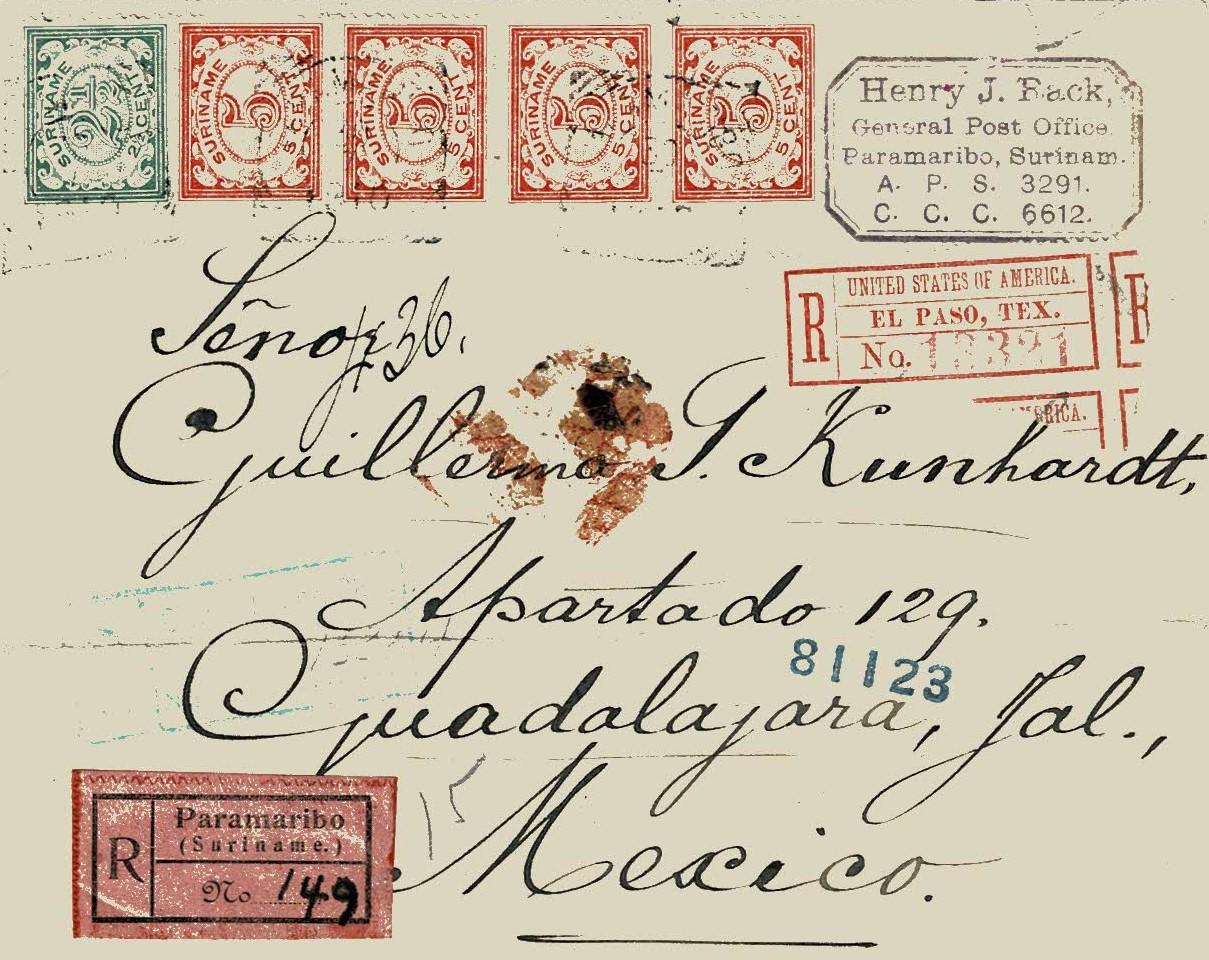 SURINAME 2½ 2½ CENT
SURINAME 5 5 CENT
SURINAME 5 5 CENT
SURINAME 5 5 CENT
SURINAME 5 5 CENT
Henry J. Back,
General Post Office
Paramaribo, Surinam.
A. P. S. 3291.
C. C. C. 6612.
R
UNITED STATES OF AMERICA.
EL PASO, TEX.
No. 12321
R
ERICA.
Señor
#36.
Guillermo G. Kunhardt,
Apartado 129.
81123
Guadalajara, Jal.,
Mexico.
15
R
Paramaribo
(Suriname.)
No 149